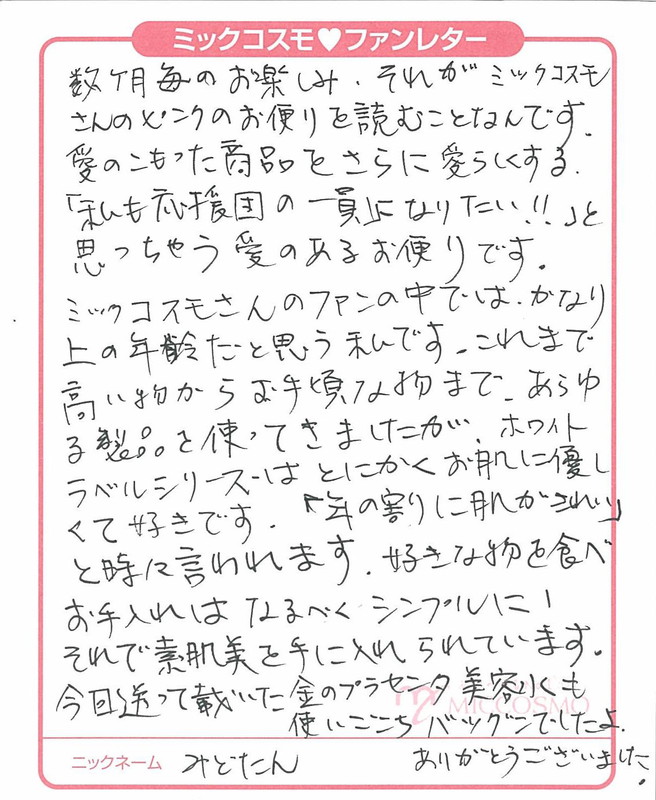 ミックコスモ♥ファンレター
数ヶ月毎のお楽しみ、それがミックコスモ
さんのピンクのお便りを読むことなんです。
愛のこもった商品をさらに愛らしくする、
「私も応援団の一員になりたい!!」と
思っちゃう愛のあるお便りです。
ミックコスモさんのファンの中では、かなり
上の年齢だと思う私です。これまで
高い物からお手頃な物まで、あらゆ
る製品を使ってきましたが、ホワイト
ラベルシリーズはとにかくお肌に優し
くて好きです。「年の割りに肌がきれい」
と時々言われます。好きな物を食べ
お手入れはなるべくシンプルに!
それで素肌美を手に入れられています。
今回送って載いた金のプラセンタ美容水も
MICCOSMO
使いごこちバツグンでしたよ。
ありがとうございました。
ニックネーム みどたん